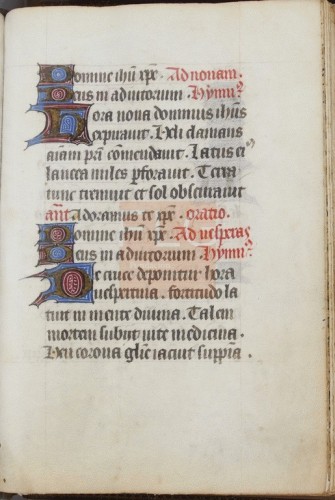 Domine ihū xp̄e. Ad nonam.
Deus in adiutorium. Hymn⁹
Hora nona dominus ihūs
expirauit. Heli clamans
aīam prī comendauit. Latus ei⁹
lancea miles perforauit. Terra
tunc tremuit et sol obscurauit
ant̄ Adoramus te xp̄e. oratio.
Domine ihū xp̄e. Ad uesperas
Deus in adiutorium. Hymn⁹
De cruce deponitur hora
uespertina. fortitudo la
tuit in mente diuina. Talem
mortem subiit uite medicina.
Heu corona glīe iacuit suppīa.